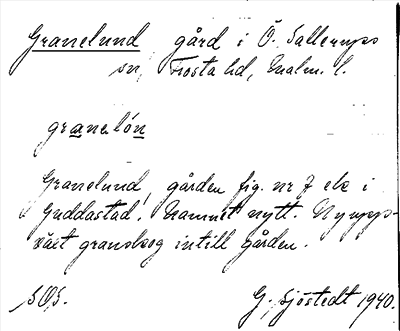 Granelund gård i Ö. Sallerups
sn, Frosta hd, Malm. l.
granelón
Granelund, gården fig. nr 7 etc i
Guddastad. Namnet nytt. Nyupp-
växt granskog intill gården.
SOS. G. Sjöstedt 1940.